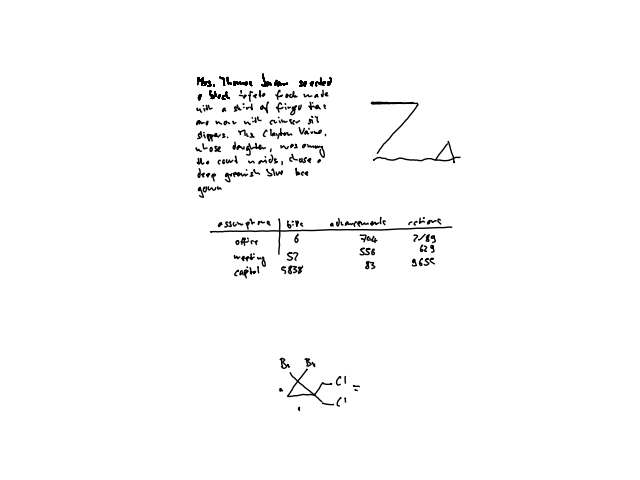 Mrs. Thomas Jordan selected
a black taffeta frock made
with a skirt of fringe that
are worn with crimson silk
slippers. Mrs. Clayton
whose daughter, was among
the court maids, chose a
deep greenish blue lace
gown
assumptions bits advancements actions
office 6 704
meeting 52 556 629
capitol 5838 83 9655
Br Br
Cl
Cl